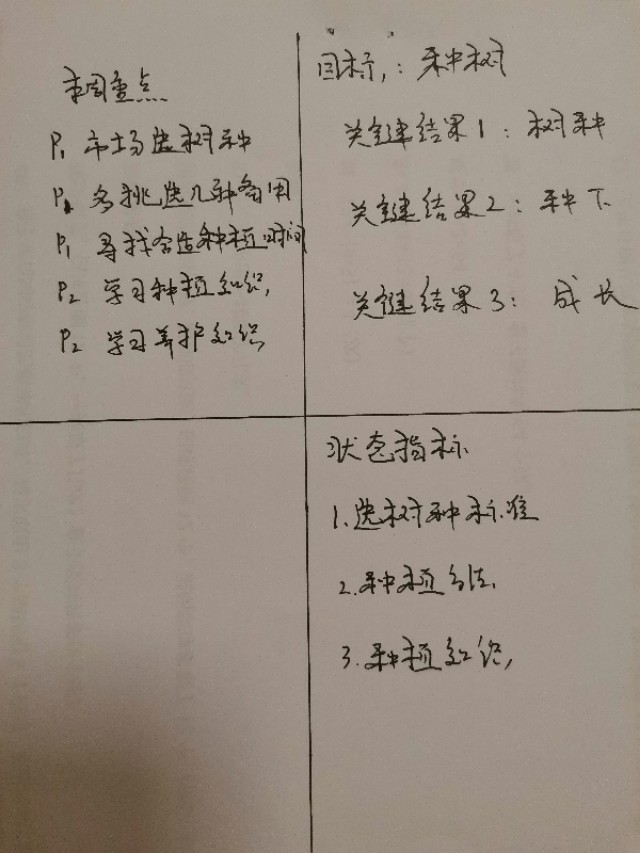 本周重点
P1 市场选树种
P1 多挑选几种备用
P1 寻找合适种植时间
P2 学习种植知识,
P2 学习养护知识
目标,: 种树
关键结果1: 树种
关键结果2: 种下
关键结果3: 成长
状态指标
1.选树种标准
2.种植方法
3.种植知识,